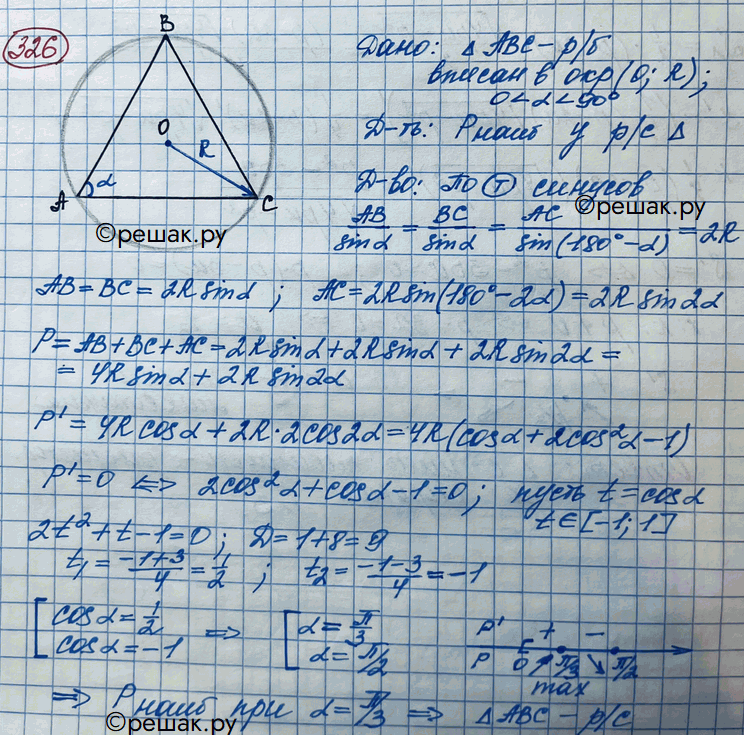 326
B
O
R
A
α
C
©решак.ру
Дано: △ ABC – р/б
вписан в окр(O; R);
0<α<90°
Д-ть: Pнаиб у р/с △
Д-во: По Ⓣ синусов
©решак.ру
AB/sinα = BC/sinα = AC/sin(180°-α) = 2R
AB=BC=2R sinα ; AC=2Rsin(180°-2α)=2R sin2α
P=AB+BC+AC=2R sinα+2R sinα+2R sin2α=
= 4R sinα+2R sin2α
P'= 4R cosα+2R·2cos2α=4R(cosα+2cos²α-1)
P'=0 ⟺ 2cos²α+cosα-1=0; пусть t=cosα
t∈[-1;1]
2t²+t-1=0; Д=1+8=9
t₁=(-1+3)/4=1/2 ; t₂=(-1-3)/4=-1
[cosα=1/2 ⇒ [α=π/3
cosα=-1 α=π/2
P' + -
P 0 ↗ π/3 ↘ π/2
max
⇒ Pнаиб при α=π/3 ⇒ △ABC – р/с
©решак.ру